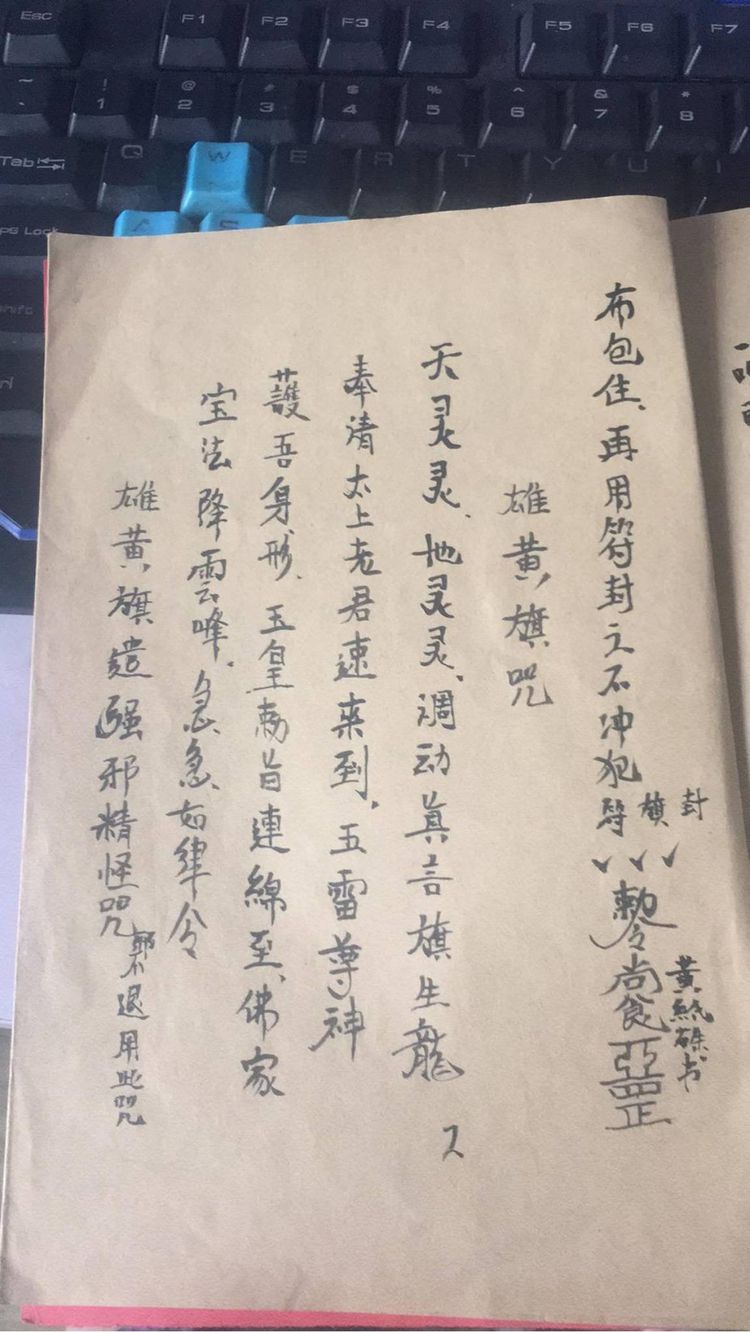 Esc F1 F2 F3 F4 F5 F6 F7
~ ! 1 @ 2 # 3 $ 4 % 5 ^ 6 & 7 * 8
Tab Q W E R T Y U I
A S
布包住、再用符封之不冲犯
封旗
勅令尚食
黄纸硃书
雄黄旗咒
天灵灵、地灵灵、调动真言旗生龍
奉清太上老君速来到、五雷尊神
護吾身形、玉皇勅旨連綿至、佛家
宝法降雲峰、急急如律令
雄黄旗遣强邪精怪咒
邪不退用此咒